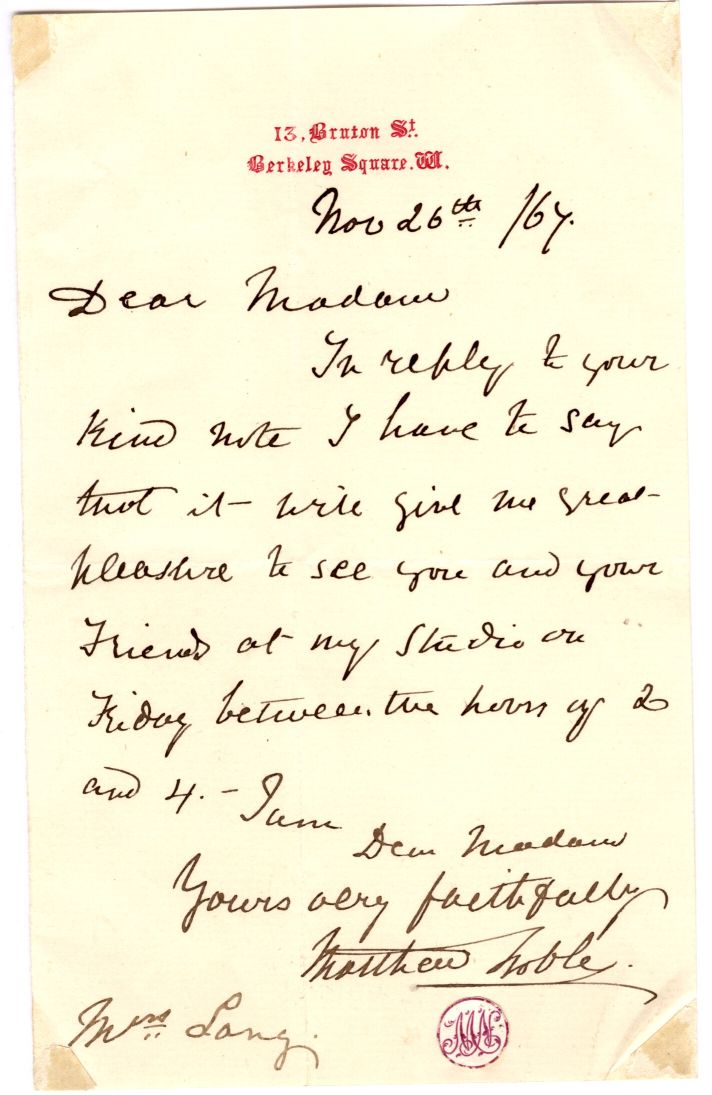 13, Bruton St.
Berkeley Square. W.
Nov 26th /67.
Dear Madam
In reply to your
kind note I have to say
that it will give me great
pleasure to see you and your
Friends at my Studio on
Friday between the hours of 2
and 4. – I am
Dear Madam
Yours very faithfully
Matthew Noble.
Mrs Lang.